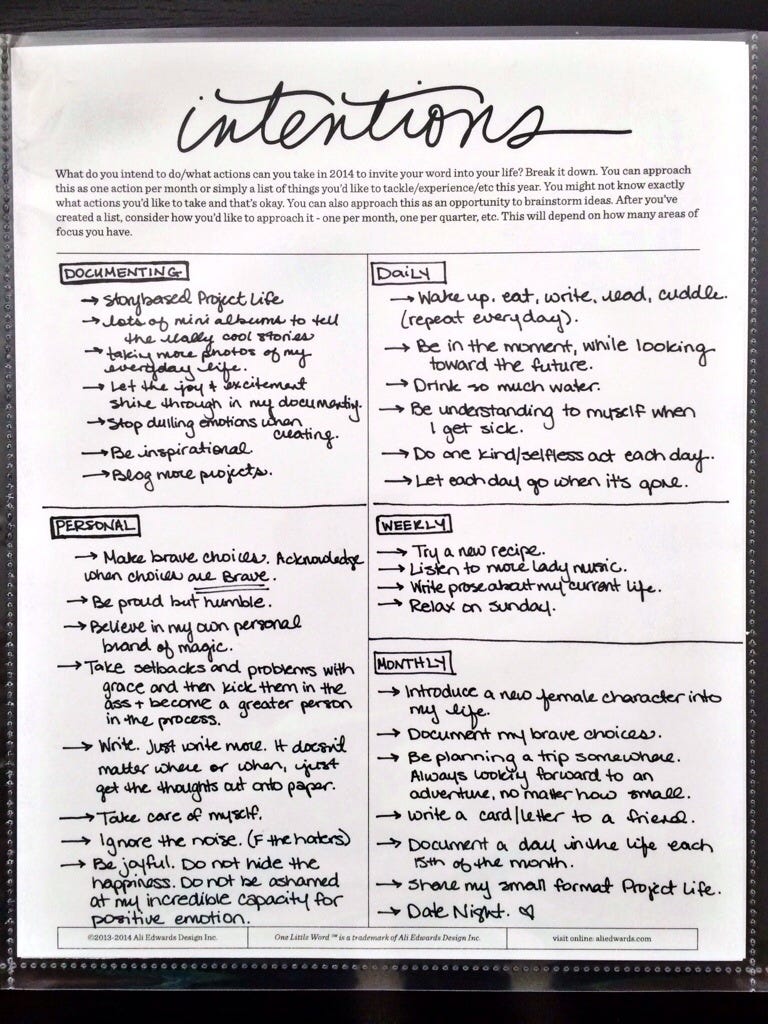 intentions
What do you intend to do/what actions can you take in 2014 to invite your word into your life? Break it down. You can approach
this as one action per month or simply a list of things you'd like to tackle/experience/etc this year. You might not know exactly
what actions you'd like to take and that's okay. You can also approach this as an opportunity to brainstorm ideas. After you've
created a list, consider how you'd like to approach it - one per month, one per quarter, etc. This will depend on how many areas of
focus you have.
DOCUMENTING
→ Storybased Project Life
→ lots of mini albums to tell
the really cool stories
→ taking more photos of my
everyday life.
→ Let the joy + excitement
shine through in my documenting.
→ Stop dulling emotions when
creating.
→ Be inspirational.
→ Blog more projects.
PERSONAL
→ Make brave choices. Acknowledge
when choices are Brave.
→ Be proud but humble.
→ Believe in my own personal
brand of magic.
→ Take setbacks and problems with
grace and then kick them in the
ass + become a greater person
in the process.
→ Write. Just write more. It doesn't
matter where or when, just
get the thoughts out onto paper.
→ Take care of myself.
→ Ignore the noise. (F the haters)
→ Be joyful. Do not hide the
happiness. Do not be ashamed
at my incredible capacity for
positive emotion.
DAILY
→ Wake up, eat, write, read, cuddle.
(repeat everyday).
→ Be in the moment, while looking
toward the future.
→ Drink so much water.
→ Be understanding to myself when
I get sick.
→ Do one kind/selfless act each day.
→ Let each day go when it's gone.
WEEKLY
→ Try a new recipe.
→ Listen to more lady music.
→ Write prose about my current life.
→ Relax on Sunday.
MONTHLY
→ Introduce a new female character into
my life.
→ Document my brave choices.
→ Be planning a trip somewhere.
Always looking forward to an
adventure, no matter how small.
→ Write a card/letter to a friend.
→ Document a day in the life each
15th of the month.
→ Share my small format Project Life.
→ Date Night. ♡
©2013-2014 Ali Edwards Design Inc.
One Little Word ™ is a trademark of Ali Edwards Design Inc.
visit online: aliedwards.com